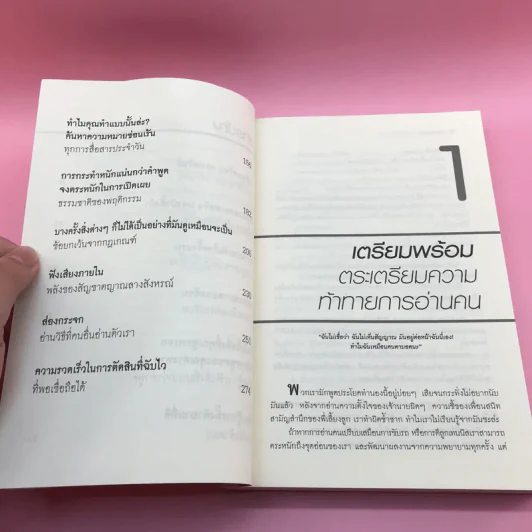 ทำไมคุณทำแบบนั้นล่ะ?
ค้นหาความหมายซ่อนเร้น
ทุกการสื่อสารประจำวัน
166
การกระทำหนักแน่นกว่าคำพูด
จงตระหนักในการเปิดเผย
ธรรมชาติของพฤติกรรม
182
บางครั้งสิ่งต่างๆ ก็ไม่ได้เป็นอย่างที่มันดูเหมือนจะเป็น
ข้อยกเว้นจากกฎเกณฑ์
206
ฟังเสียงภายใน
พลังของสัญชาตญาณลางสังหรณ์
230
ส่องกระจก
อ่านวิธีที่คนอื่นอ่านตัวเรา
ความรวดเร็วในการตัดสินที่ฉับไว
ที่พอเชื่อถือได้
274
1
เตรียมพร้อม
ตระเตรียมความ
ท้าทายการอ่านคน
"ฉันไม่เชื่อว่า ฉันไม่เห็นสัญญาณ มันอยู่ต่อหน้าฉันนี่เอง!
ทำไมฉันเหมือนคนตาบอดนะ"
พวกเรามักพูดประโยคทำนองนี้อยู่บ่อยๆ
มันแล้ว หลังจากอ่านความตั้งใจของเจ้านายผิดๆ ความซื่อของเพื่อนสนิท
สามัญสำนึกของพี่เลี้ยงลูก เราทำผิดซ้ำซาก ทำไมเราไม่เรียนรู้จากมันซะล่ะ
ถ้าหากการอ่านคนเปรียบเสมือนการขับรถ หรือการตีลูกเทนนิสเราสามารถ
ตระหนักถึงจุดอ่อนของเรา และพัฒนาผลงานจากความพยายามทุกครั้ง แต่